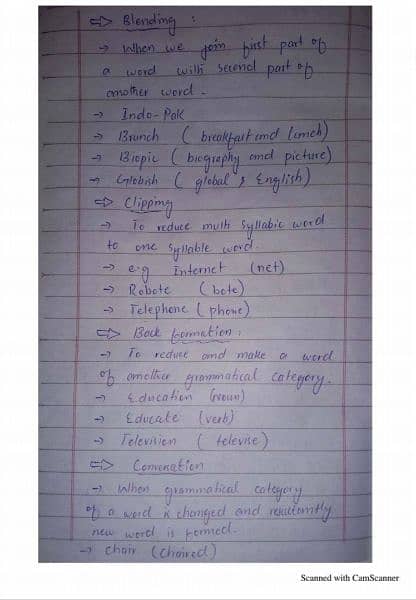 ⇒ Blending :
→ When we join first part of
a word with second part of
another word.
→ Indo-Pak
→ Brunch ( breakfast and lunch)
→ Biopic ( biography and picture)
→ Globish ( global & English)
⇒ Clipping
→ To reduce multi syllabic word
to one syllable word.
→ e.g Internet (net)
→ Robote (bote)
→ Telephone ( phone)
⇒ Back formation :
→ To reduce and make a word
of another grammatical category.
→ Education (noun)
→ Educate (verb)
→ Television ( televise)
⇒ Conversation
→ When grammatical category
of a word is changed and
new word is formed.
→ chair (chaired)
Scanned with CamScanner